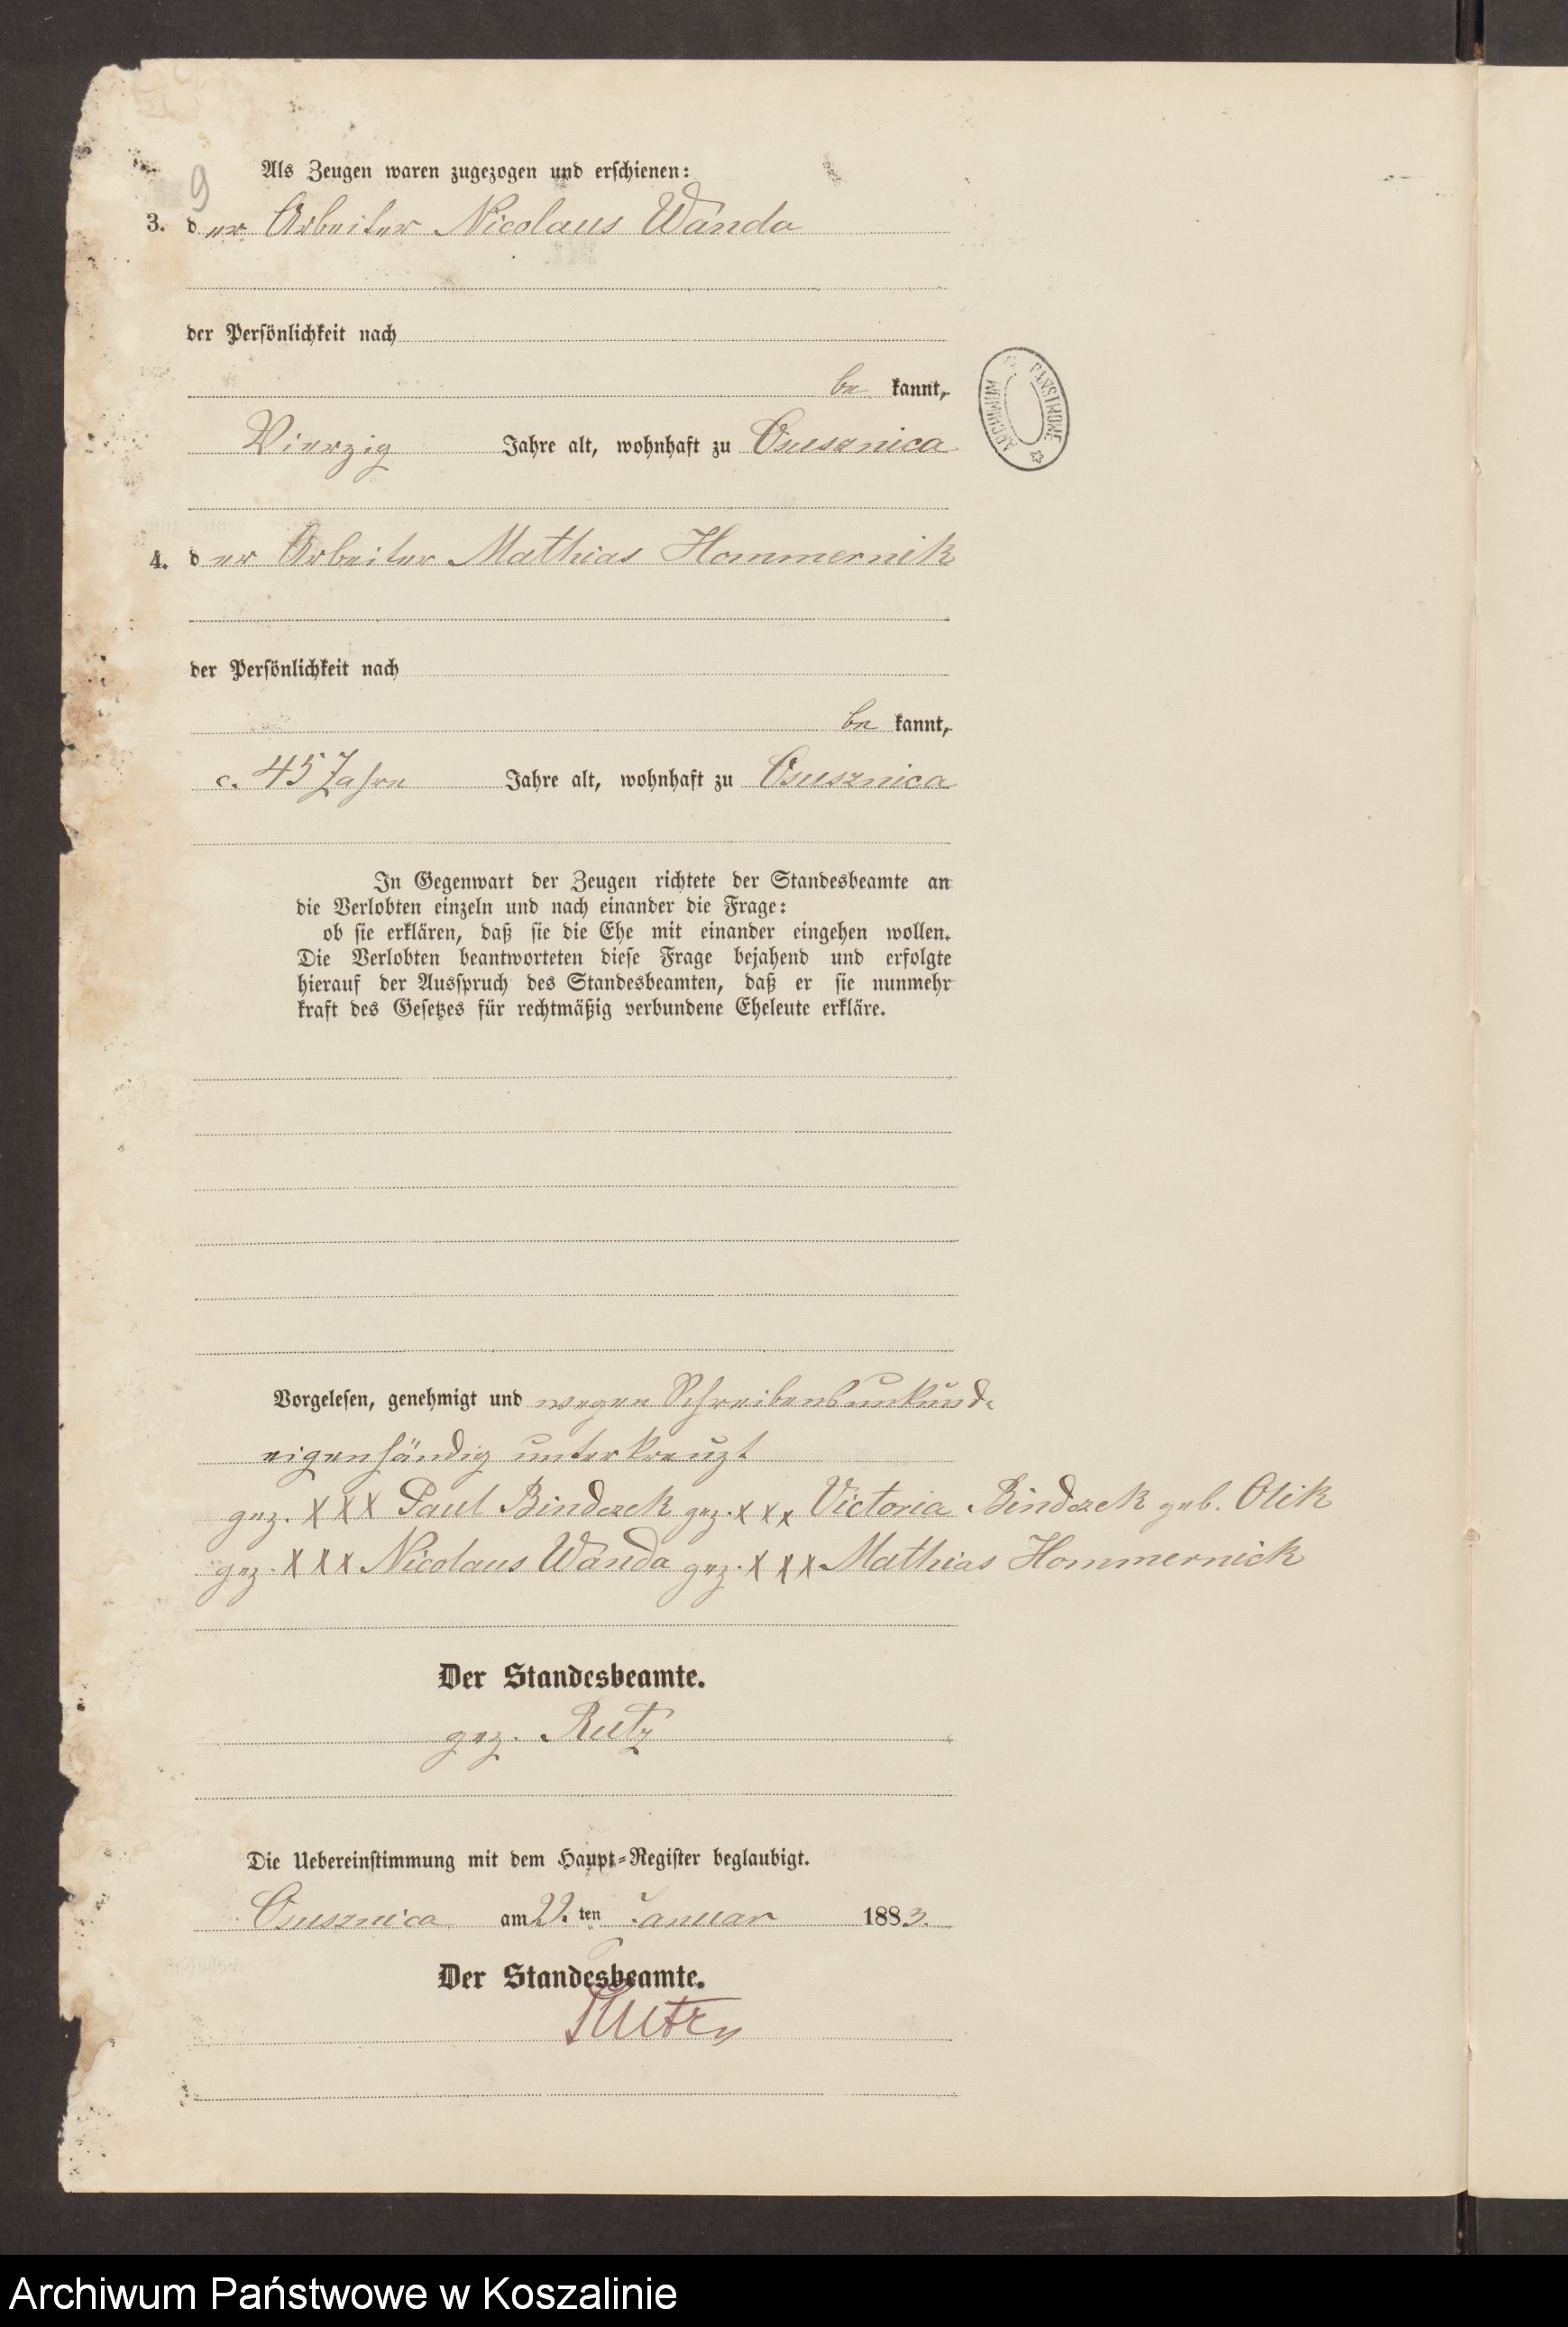 9
Als Zeugen waren zugezogen und erschienen:
3. der Arbeiter Nicolaus Wanda
der Persönlichkeit nach
be kannt,
Vierzig Jahre alt, wohnhaft zu Osusznica
4. der Arbeiter Mathias Hommernik
der Persönlichkeit nach
be kannt,
c. 45 Jahre Jahre alt, wohnhaft zu Osusznica
In Gegenwart der Zeugen richtete der Standesbeamte an
die Verlobten einzeln und nach einander die Frage:
ob sie erklären, daß sie die Ehe mit einander eingehen wollen.
Die Verlobten beantworteten diese Frage bejahend und erfolgte
hierauf der Ausspruch des Standesbeamten, daß er sie nunmehr
kraft des Gesetzes für rechtmäßig verbundene Eheleute erkläre.
Vorgelesen, genehmigt und wegen Schreibensunkunde
eigenhändig unterkreuzt
gez. XXX Paul Bindczek gez. xxx Victoria Bindczek geb. Olik
gez. XXX Nicolaus Wanda gez. XXX Mathias Hommernick
Der Standesbeamte.
gez. Rutz
Die Uebereinstimmung mit dem Haupt-Register beglaubigt.
Osusznica am 22. ten Januar 1883.
Der Standesbeamte.
Rutz
ARCHIWUM PAŃSTWOWE
Archiwum Państwowe w Koszalinie